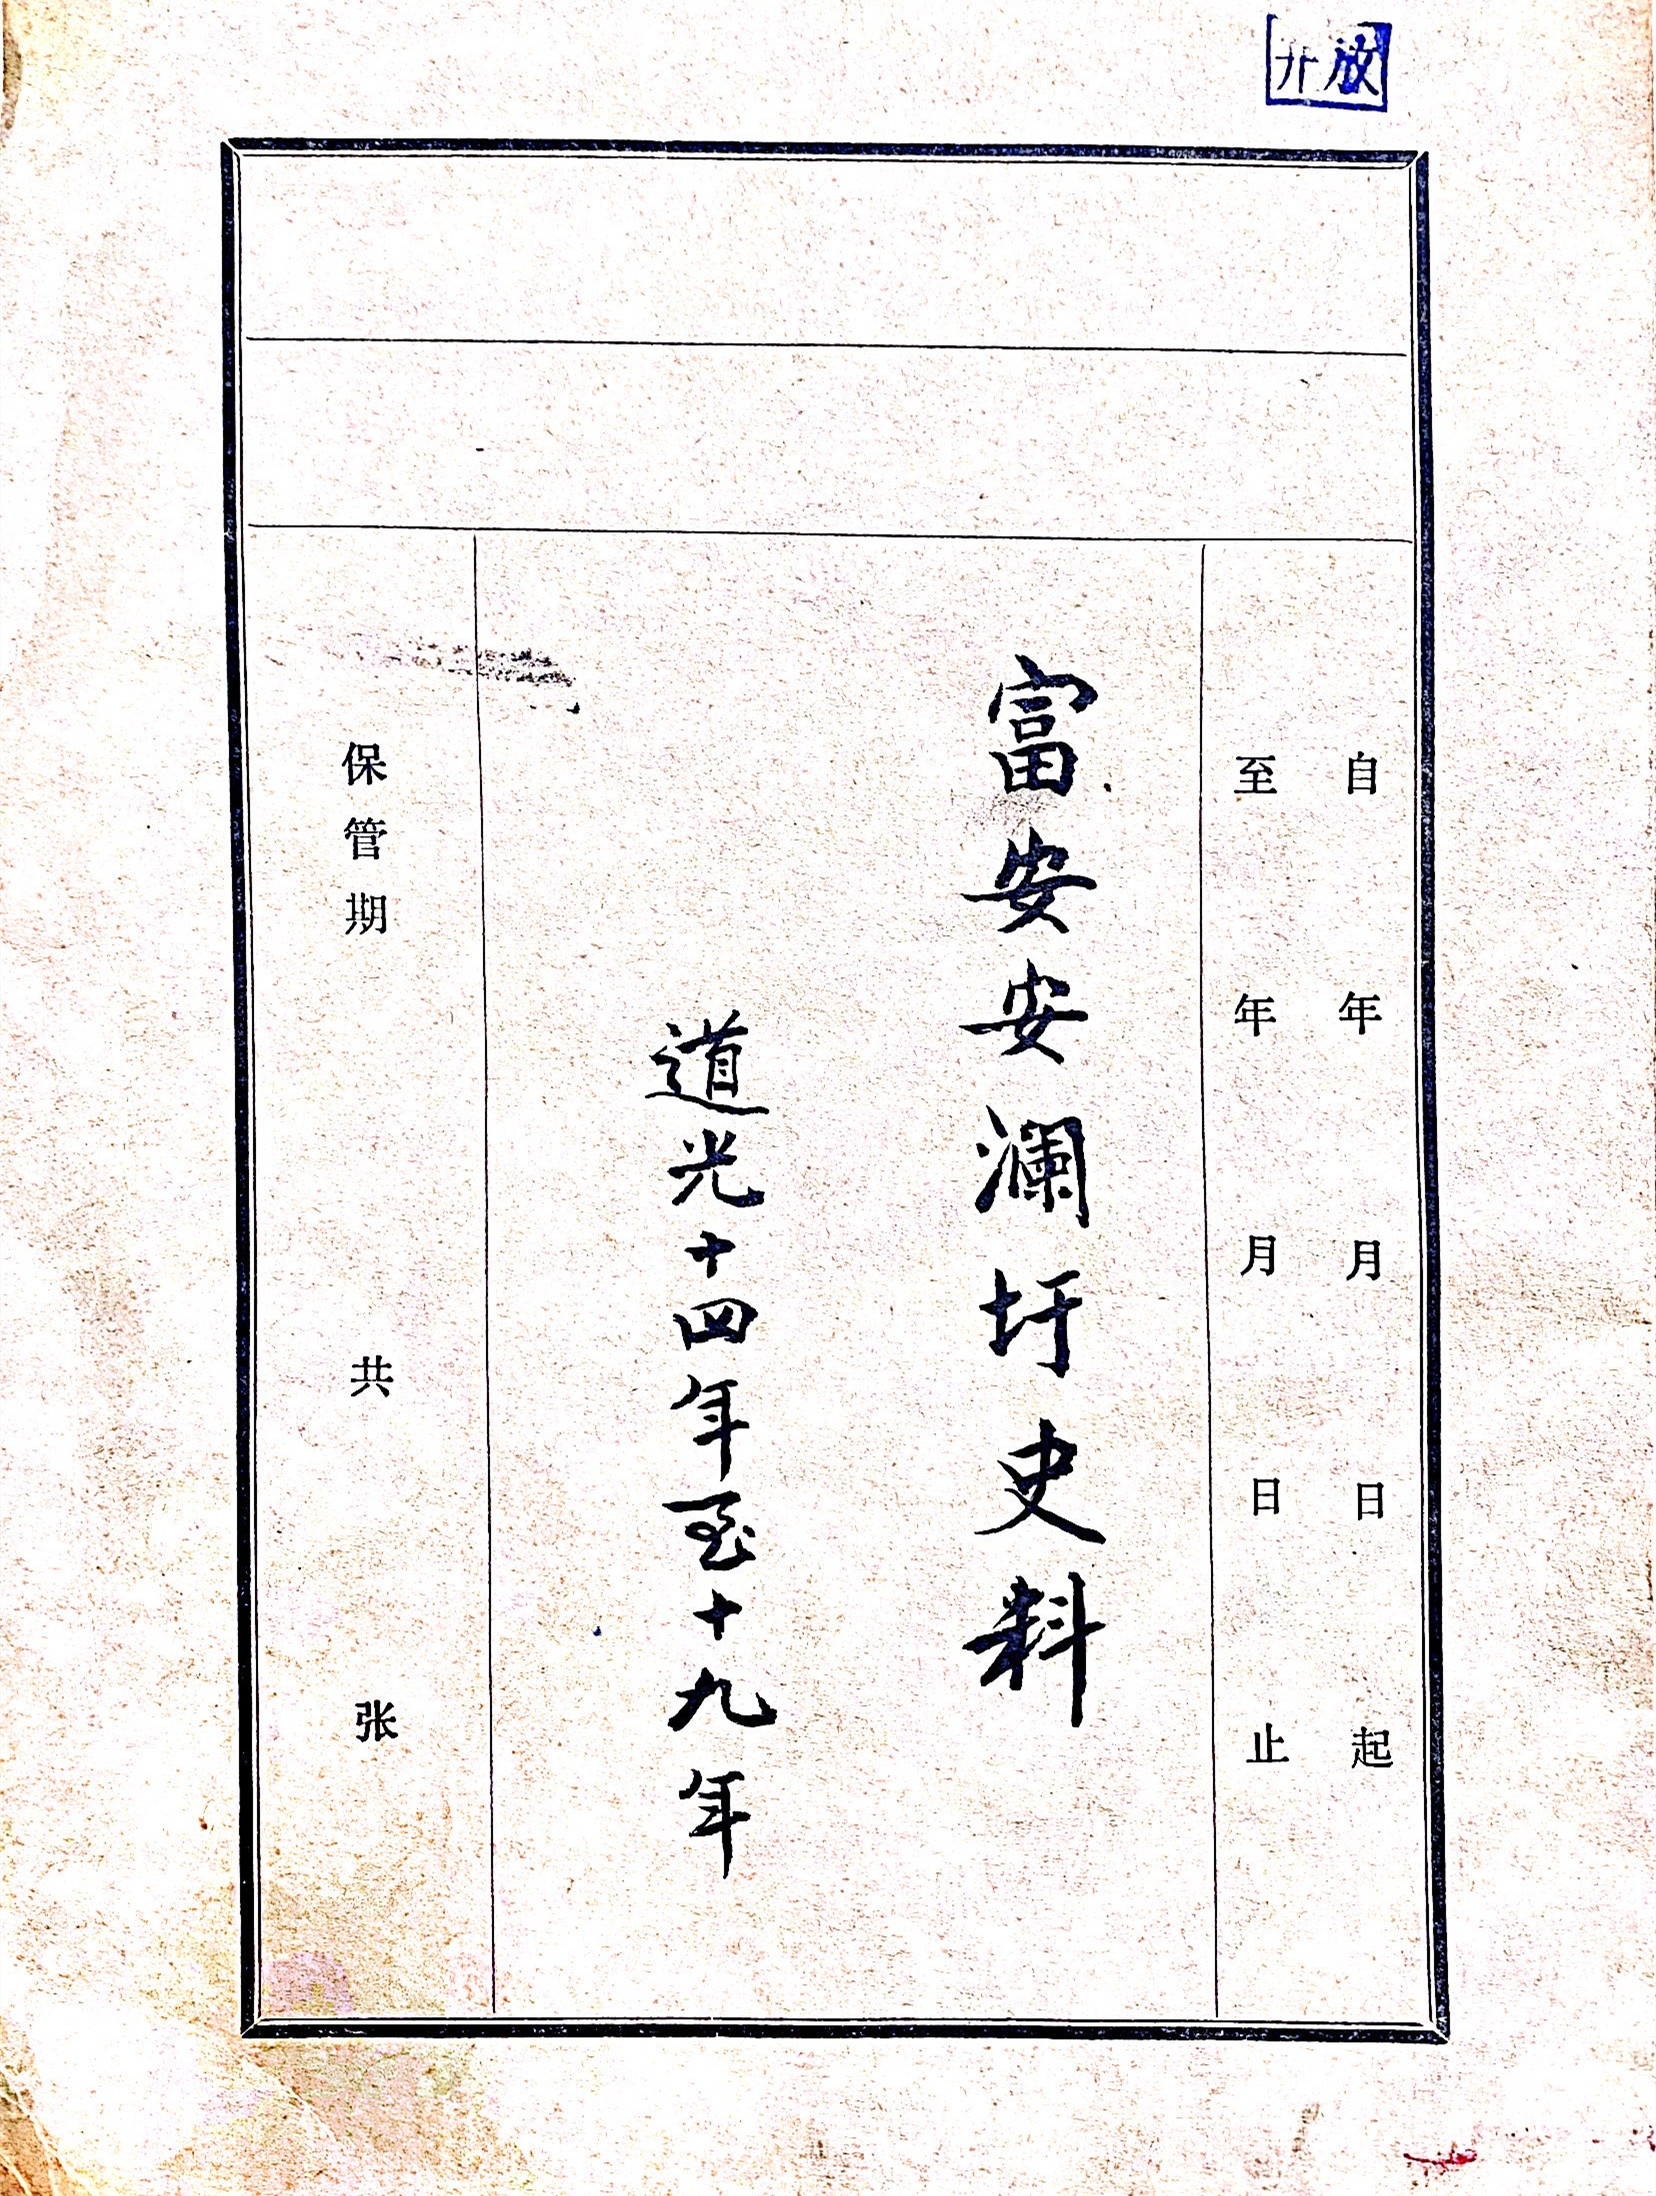 开放
自 年 月 日 起
至 年 月 日 止
富安安澜圩史料
道光十四年至十九年
保管期 共 张